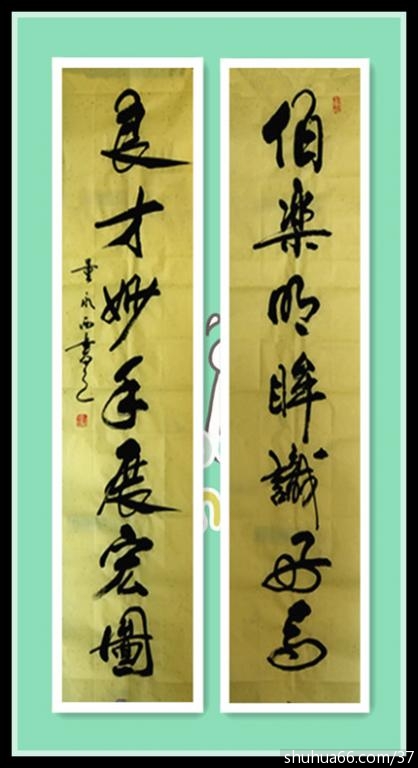 伯樂明眸識好馬
良才妙手展宏圖
shuhua66.com/37